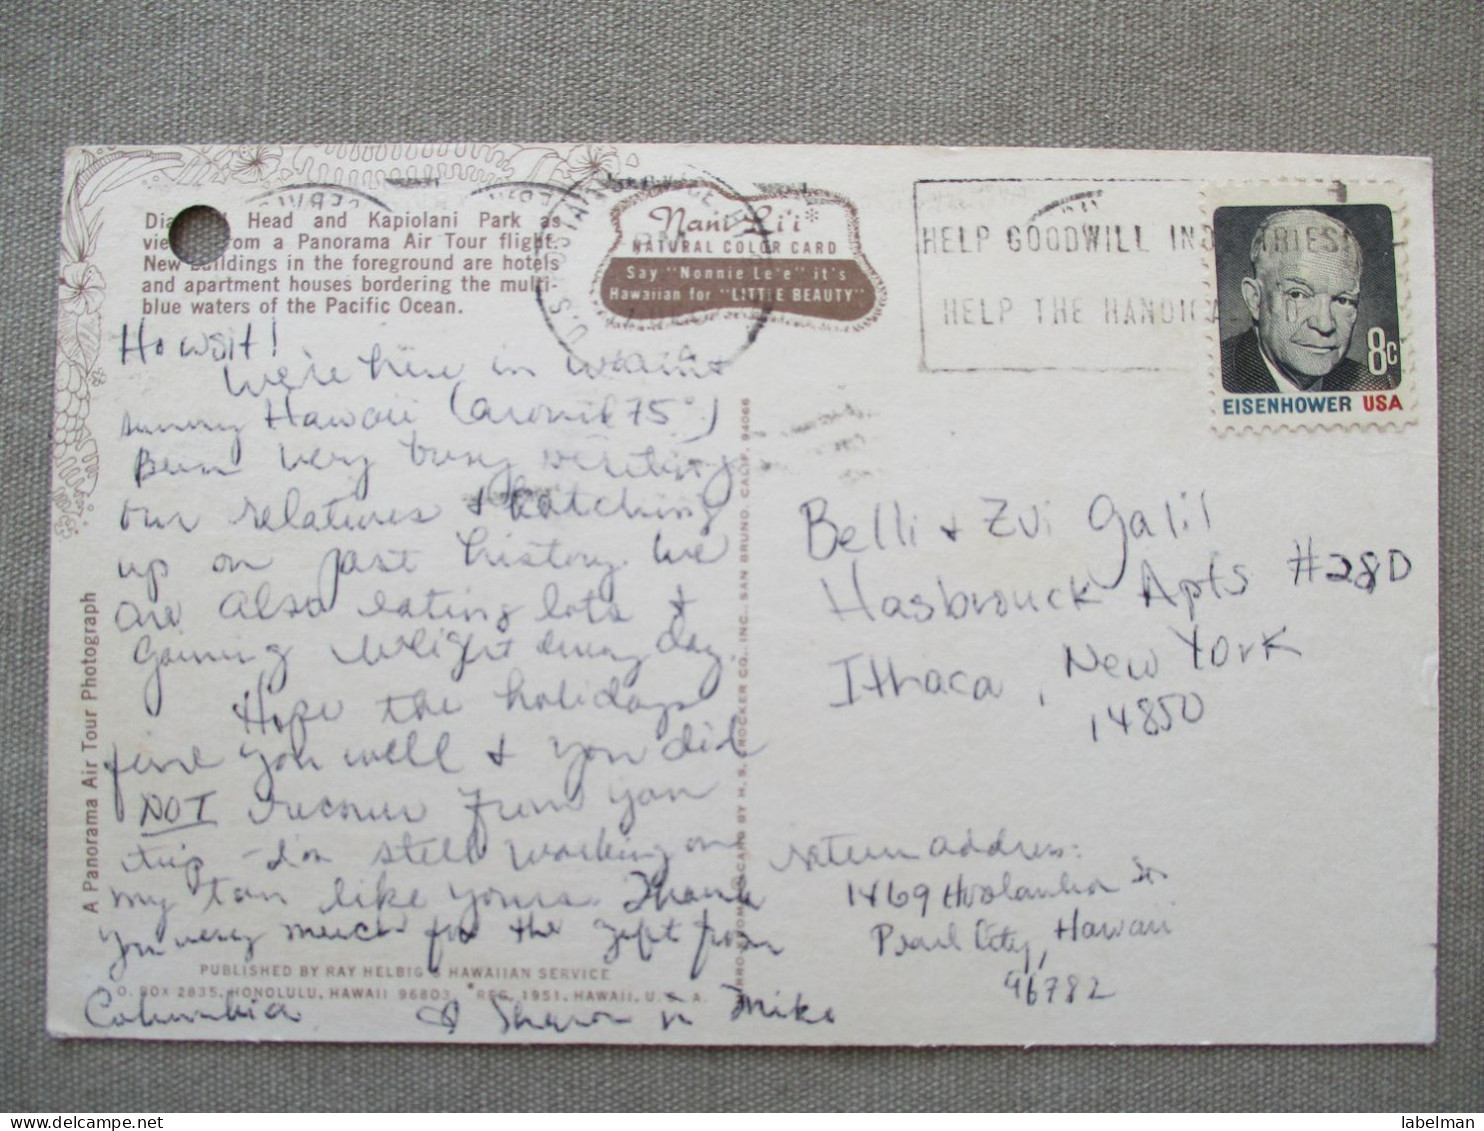 Head and Kapiolani Park as
from a Panorama Air Tour flight.
New buildings in the foreground are hotels
and apartment houses bordering the multi-
blue waters of the Pacific Ocean.
Nani Li'i*
NATURAL COLOR CARD
Say "Nonnie Le'e" it's
Hawaiian for "LITTLE BEAUTY"
HELP GOODWILL INDUSTRIES
HELP THE HANDICAPPED
8c
EISENHOWER USA
Howsit!
We're here in warm &
sunny Hawaii (around 75°)
Been very busy visiting
our relatives & catching
up on past history. We
are also eating lots &
gaining weight every day.
Hope the holidays
find you well & you did
NOT recover from your
trip - I'm still working on
my tan like yours. Thank
you very much for the gift from
Columbia
Sharon & Mike
Belli & Zvi Galil
Hasbrouck Apts #28D
Ithaca, New York
14850
return address:
1469
Pearl City, Hawaii
96782
A Panorama Air Tour Photograph
PUBLISHED BY RAY HELBIG'S HAWAIIAN SERVICE
P.O. BOX 2835, HONOLULU, HAWAII 96803 *REG. 1951, HAWAII, U.S.A.
MIRRO-KROME CARD BY H. S. CROCKER CO., INC., SAN BRUNO, CALIF. 94066
labelman